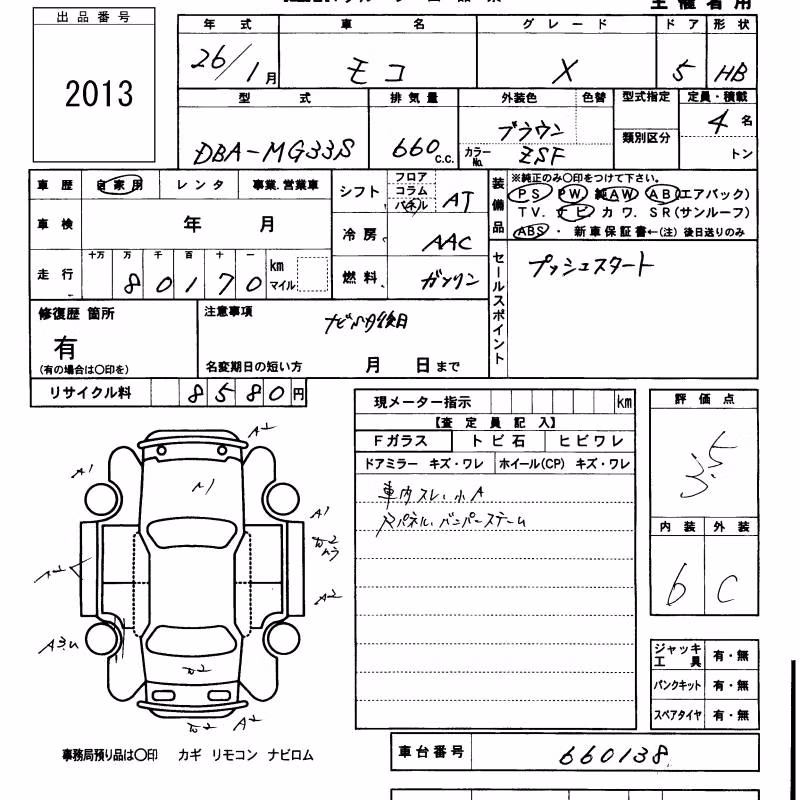 主催者用
出品番号
2013
年式 車名 グレード ドア 形状
26/1月 モコ X 5 HB
型式 排気量 外装色 色替 型式指定 定員・積載
DBA-MG33S 660c.c. ブラウン 4名
カラーNo. ZSF 類別区分 トン
車歴 自家用 レンタ 事業.営業車
車検 年 月
走行 十万 万 千 百 十 一
80170 km マイル
シフト フロア コラム パネル AT
冷房 AAC
燃料 ガソリン
装備品 ※純正のみ○印をつけて下さい。
PS PW 純AW AB(エアバッグ)
TV. ナビ カワ. SR(サンルーフ)
ABS ・ 新車保証書←(注) 後日送りのみ
セールスポイント
プッシュスタート
修復歴 箇所
有
(有の場合は○印を)
注意事項
名変期日の短い方 月 日まで
リサイクル料 8580円
現メーター指示 km
【査定員記入】
Fガラス トビ石 ヒビワレ
ドアミラー キズ・ワレ ホイール(CP) キズ・ワレ
車内スレ、小A
Rパネル、バンパースチーム
評価点
3.5
内装 外装
b C
A2
A1
A1
A2
A2
A2
ジャッキ工具 有・無
パンクキット 有・無
スペアタイヤ 有・無
事務局預り品は○印 カギ リモコン ナビロム
車台番号 660138